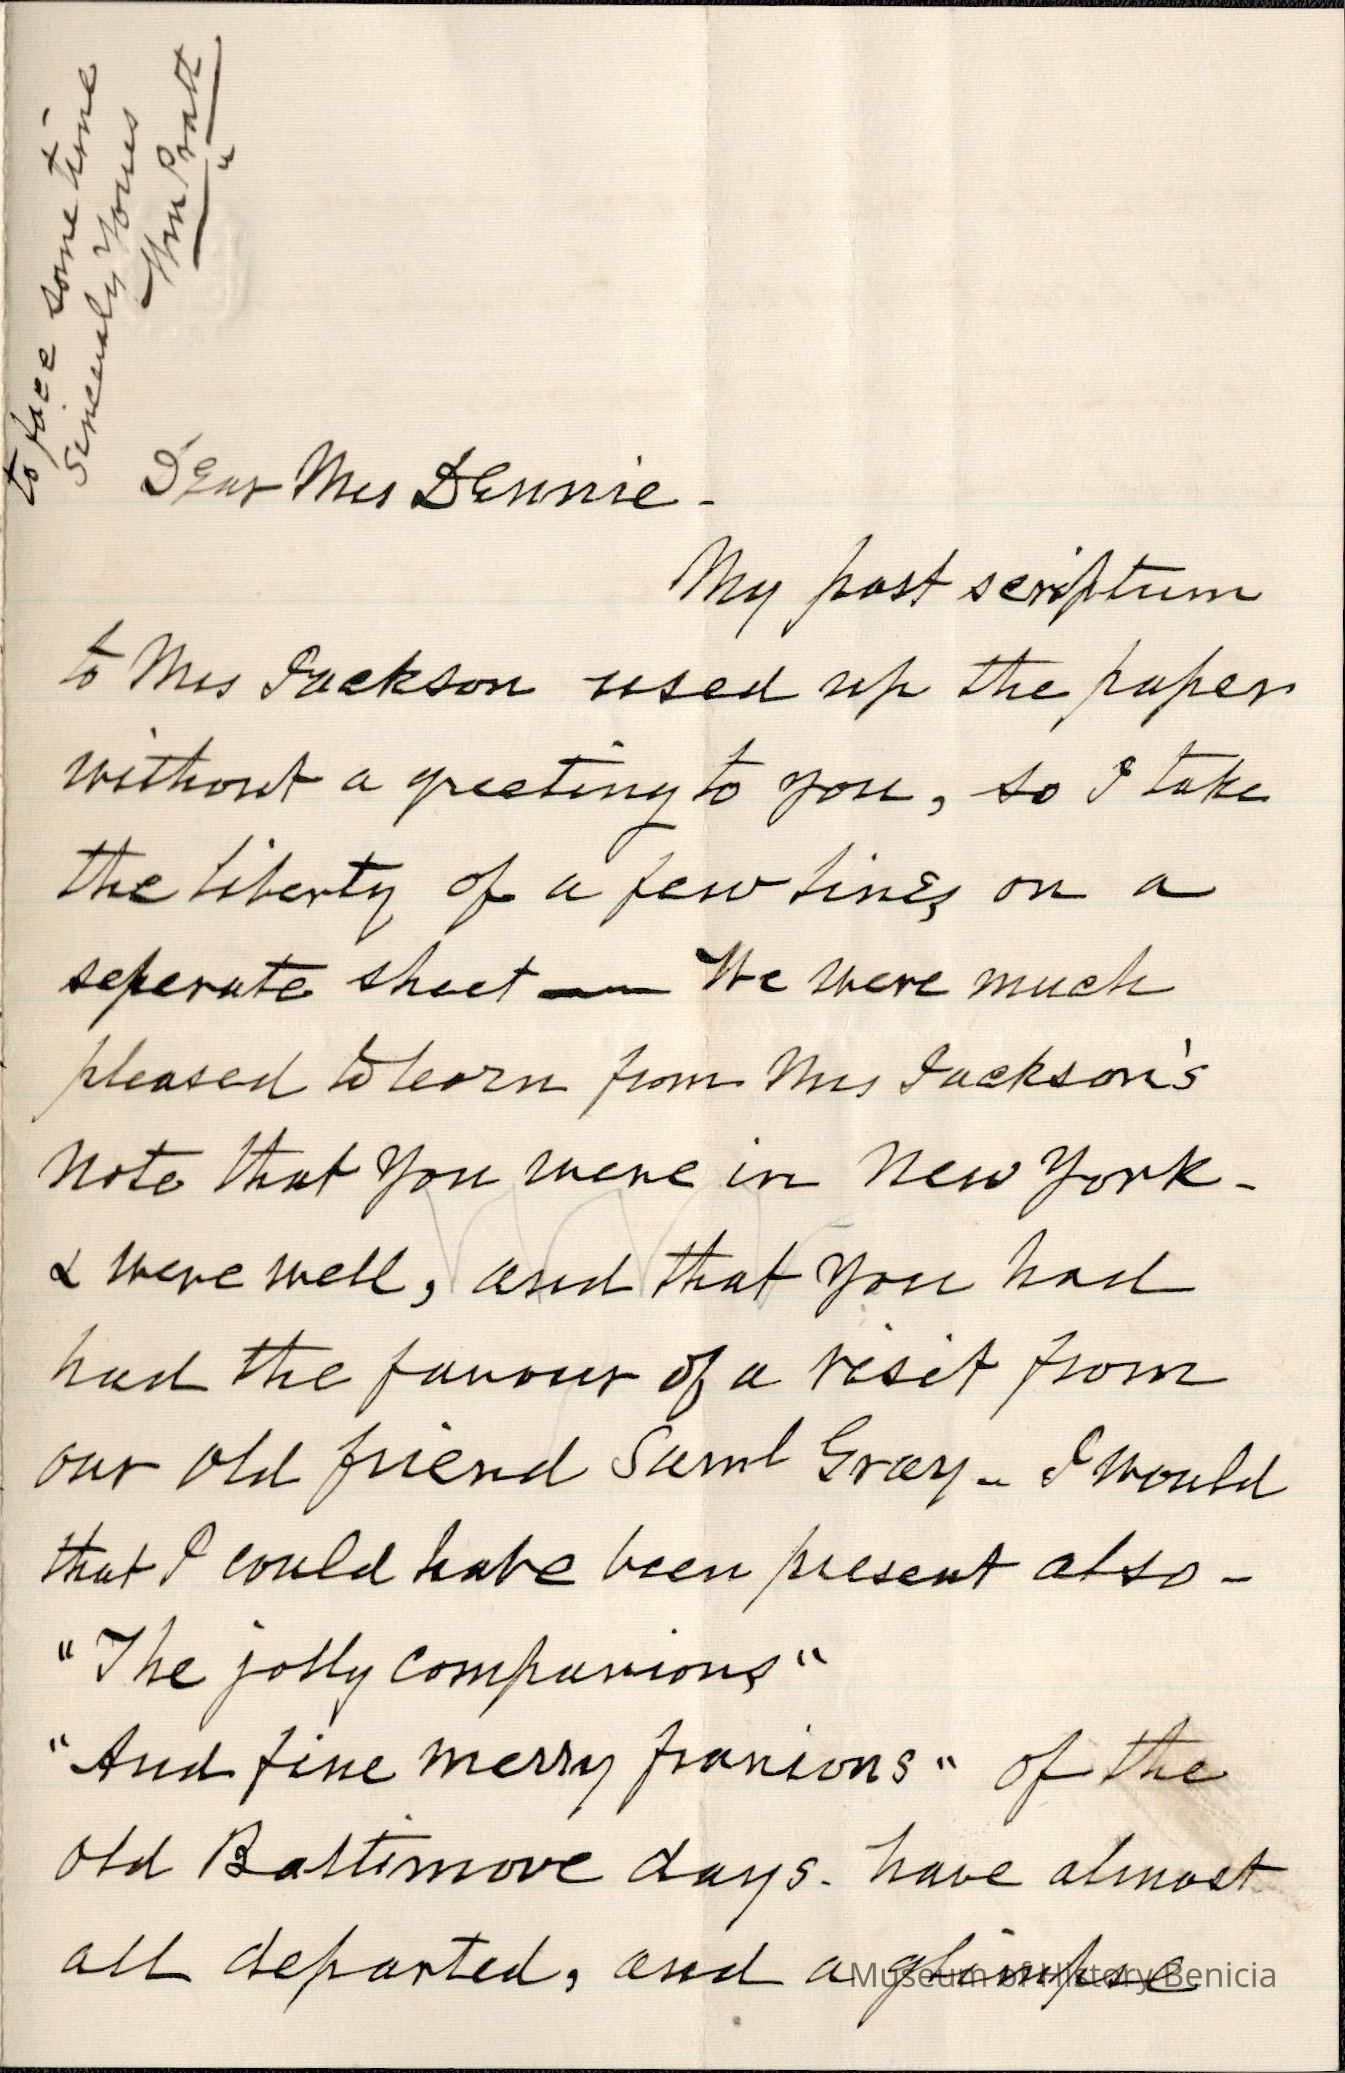 to face some time
Sincerely Yours
Wm Pratt
Dear Mrs Dennie -
My post scriptum
to Mrs Jackson used up the paper
without a greeting to you, so I take
the liberty of a few lines on a
seperate sheet — We were much
pleased to learn from Mrs Jackson's
note that you were in New York -
& were well, and that you had
had the favour of a visit from
our old friend Saml Gray - I would
that I could have been present also -
"The jolly companions"
"And fine merry franions" of the
old Baltimore days. have almost
all departed, and a glimpse
Museum of History Benicia